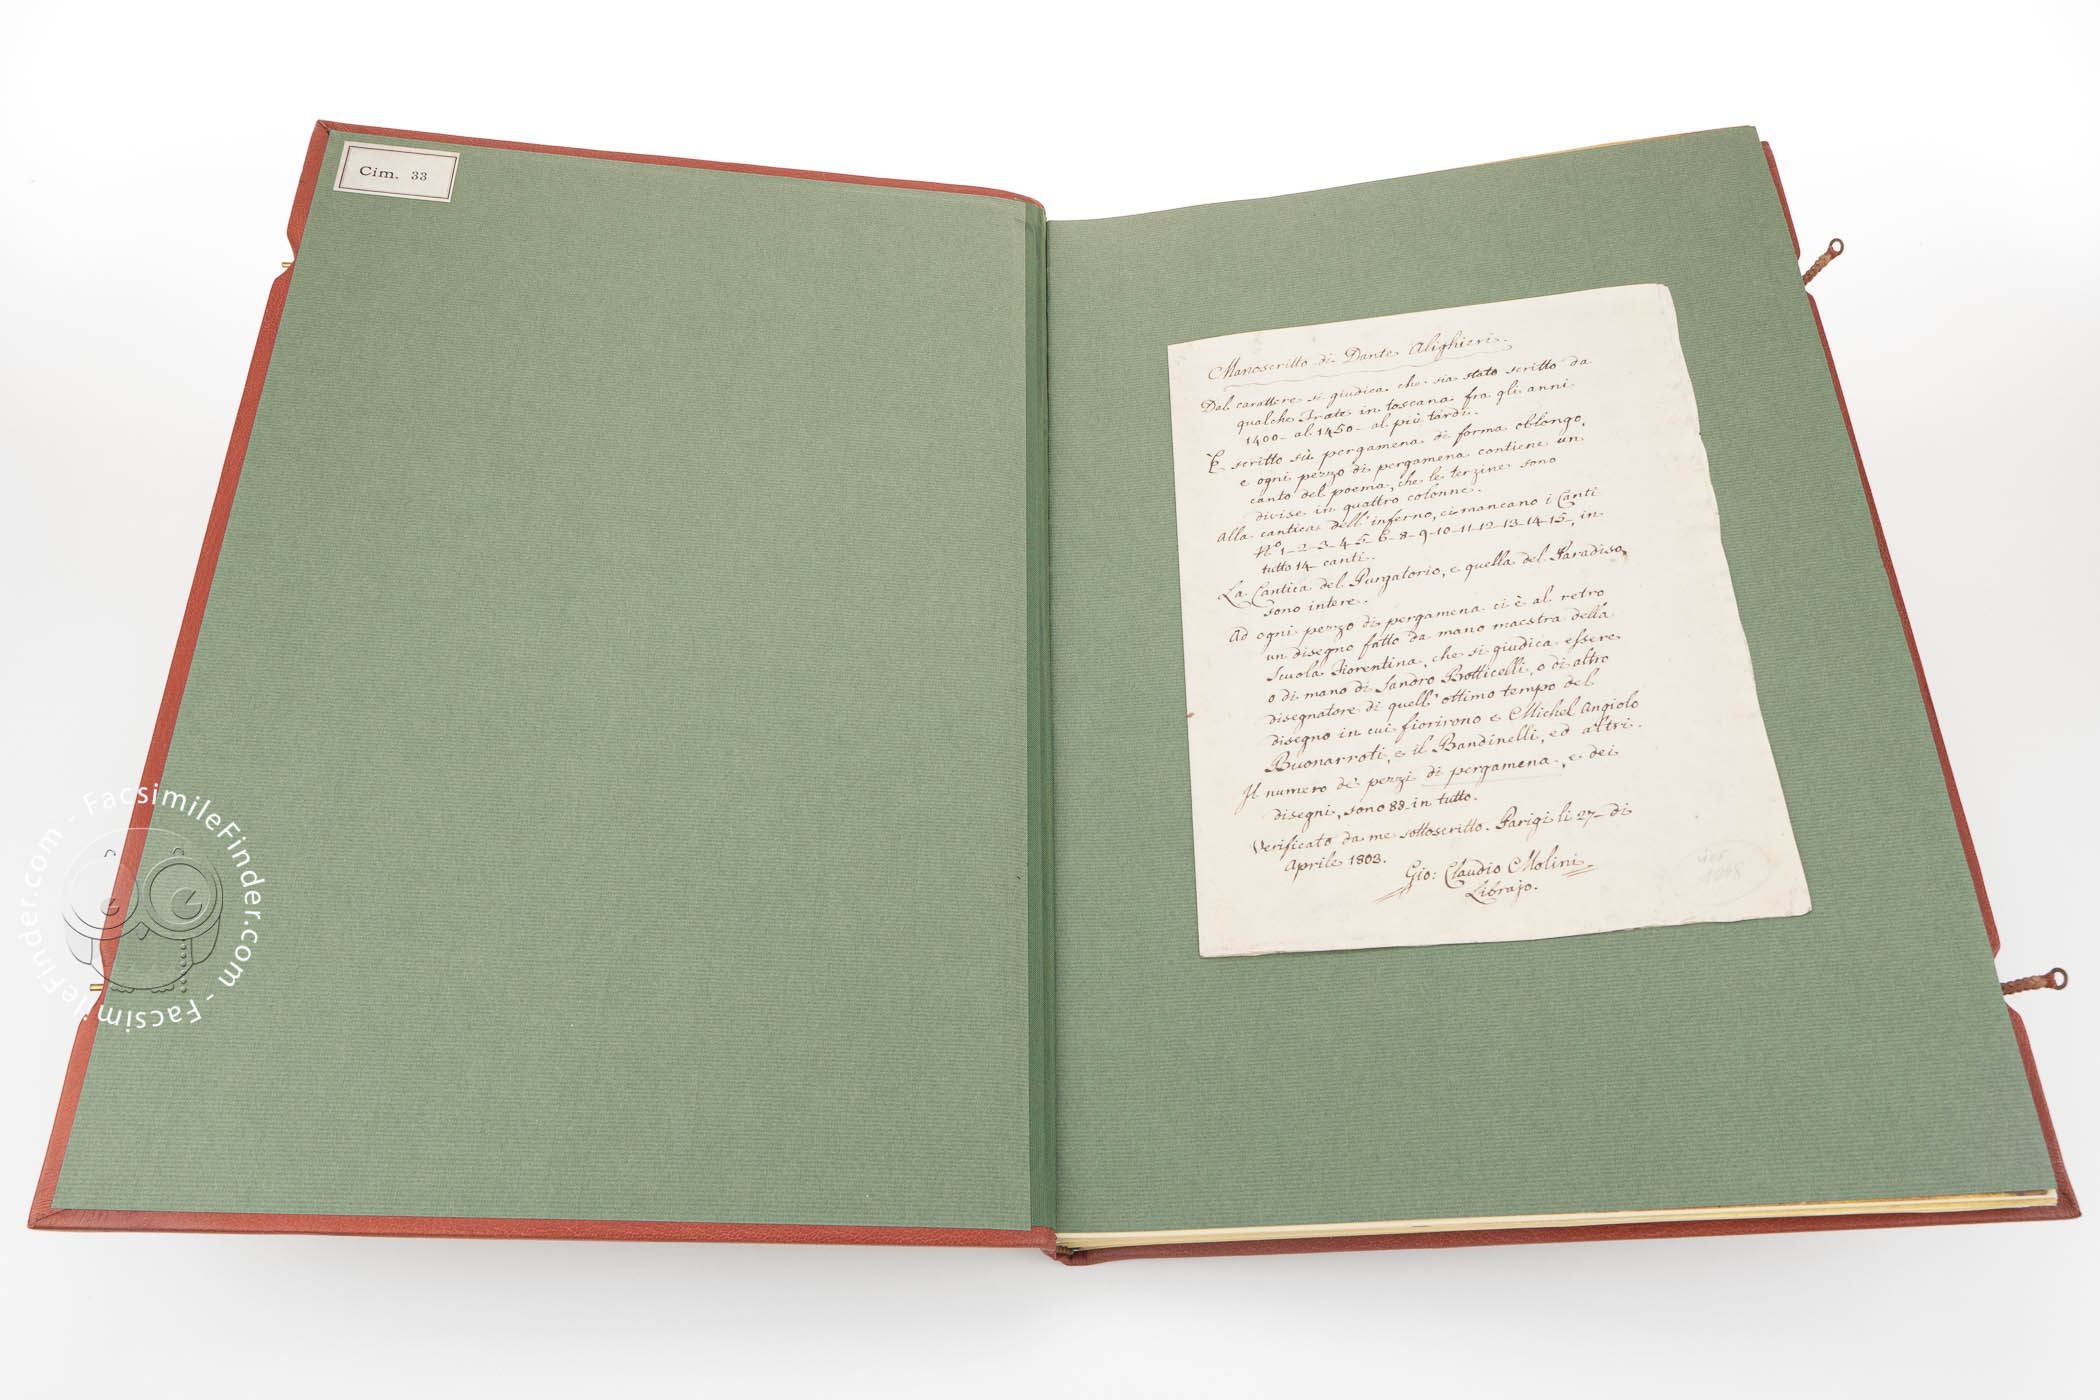 Cim. 33
Manoscritto di Dante Alighieri.
Dal carattere si giudica che sia stato scritto da
qualche Frate in toscana fra gli anni
1400 - al 1450 - al più tardi.
È scritto sù pergamena di forma oblongo,
e ogni pezzo di pergamena contiene un
canto del poema, che le terzine sono
divise in quattro colonne.
Alla cantica dell' inferno, ci mancano i Canti
N.º 1-2-3-4-5-6-8-9-10-11-12-13-14-15-, in
tutto 14 canti.
La Cantica del Purgatorio, e quella del Paradiso,
sono intere.
Ad ogni pezzo di pergamena ci è al retro
un disegno fatto da mano maestra della
Scuola Fiorentina, che si giudica essere
o di mano di Sandro Botticelli, o di altro
disegnatore di quell' ottimo tempo del
disegno in cui fiorirono e Michel Angiolo
Buonarroti, e il Bandinelli, ed altri.
Il numero de' pezzi di pergamena, e dei
disegni, sono 88 in tutto.
Verificato da me sottoscritto. Parigi li 27- di
Aprile 1803.
Gio: Claudio Molini
Librajo.
FacsimileFinder.com - FacsimileFinder.com -